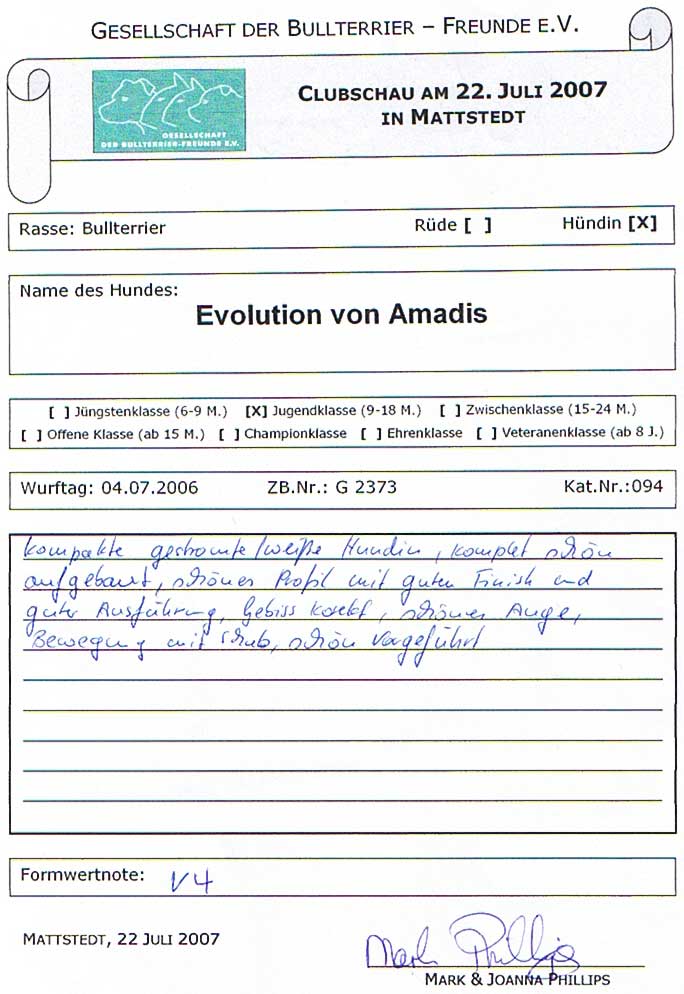 GESELLSCHAFT DER BULLTERRIER – FREUNDE E.V.
GESELLSCHAFT
DER BULLTERRIER-FREUNDE E.V.
CLUBSCHAU AM 22. JULI 2007
IN MATTSTEDT
Rasse: Bullterrier Rüde [ ] Hündin [X]
Name des Hundes:
Evolution von Amadis
[ ] Jüngstenklasse (6-9 M.) [X] Jugendklasse (9-18 M.) [ ] Zwischenklasse (15-24 M.)
[ ] Offene Klasse (ab 15 M.) [ ] Championklasse [ ] Ehrenklasse [ ] Veteranenklasse (ab 8 J.)
Wurftag: 04.07.2006 ZB.Nr.: G 2373 Kat.Nr.:094
kompakte gestromte/weiße Hündin, komplet schön
aufgebaut, schönes Profil mit guten Finish und
guter Ausführung, Gebiss korekt, schönes Auge,
Bewegung mit Schub, schön vorgeführt
Formwertnote: V4
MATTSTEDT, 22 JULI 2007
Mark Phillips
MARK & JOANNA PHILLIPS